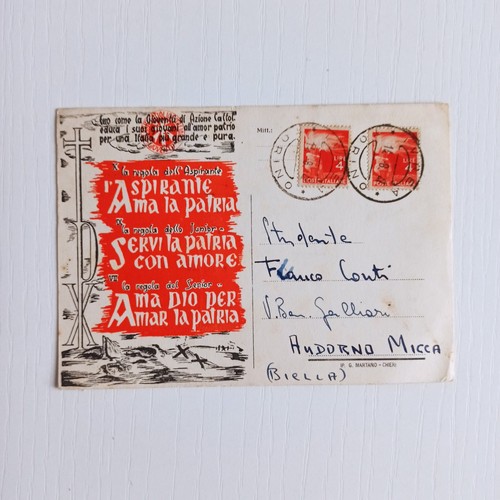 Ecco come la Gioventù di Azione Cattol.
educa i suoi giovani all'amor patrio
per una Italia più grande e pura.
X la regola dell'Aspirante
l'ASPIRANTE
AMA LA PATRIA
XX la regola dello Junior -
SERVI LA PATRIA
CON AMORE
VIII la regola del Senior -
AMA DIO PER
AMAR LA PATRIA
PX
Mitt.:
TORINO
4
4
Studente
Franco Conti
V. Ban. Galliari
ANDORNO MICCA
(BIELLA)
P. G. MARTANO - CHIERI